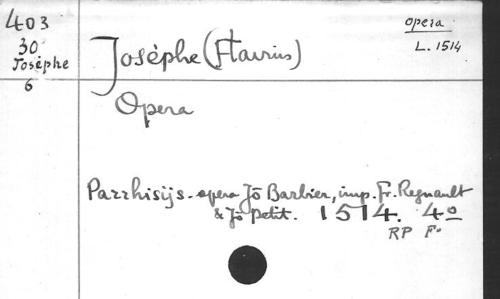 403
30
Josèphe
6
Josèphe (Flavius)
opera
L. 1514
Opera
Parrhisijs - opera Jō Barbier, imp. Fr. Regnault
& Jō Petit. 1514. 4º
RP Fº